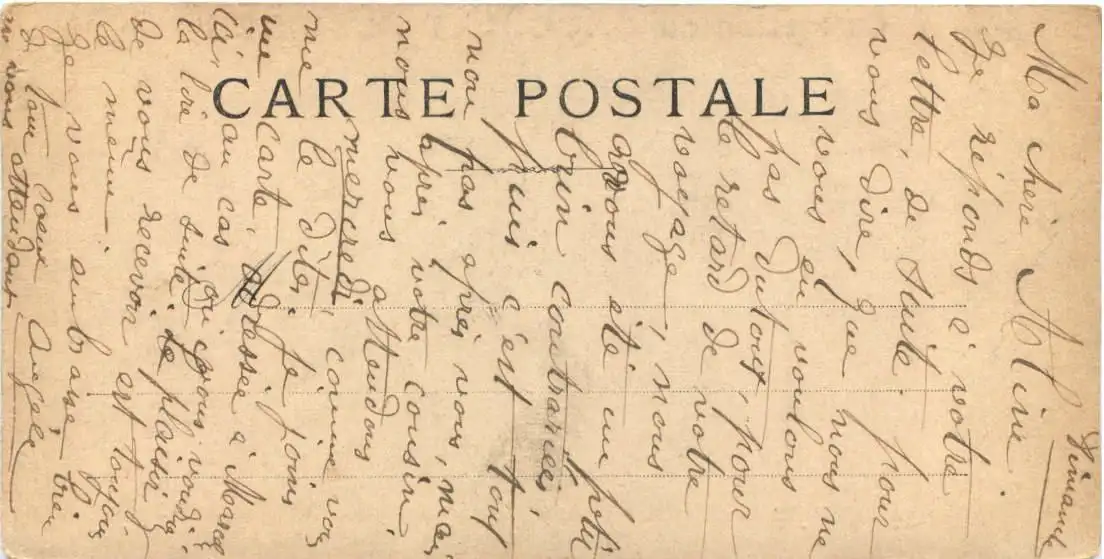 CARTE POSTALE
Dimanche
Ma chère Aline.
Je réponds à votre
lettre, de suite. pour
vous dire, que nous ne
vous en voulons
pas du tout, pour
le retard de votre
voyage, nous
avons été un petit
brin contrariés,
puis c'est tout
non pas après vous, mais
après votre cousin,
nous vous attendons
mercredi, comme vous
me le dites, je joins
une carte, adressée à Marcel
au cas où vous voudriez
la lire de suite. Le plaisir
de vous recevoir est toujours
le même.
Je vous embrasse bien
de tout cœur Angèle
en vous attendant.